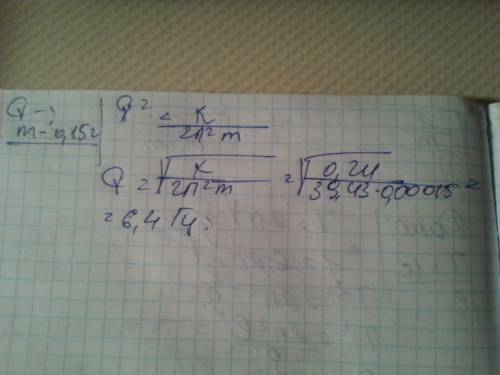 Q - ?
m - 0,15г
Q² = K / 2π²m
Q = √(K / 2π²m) = √(0,24 / 39,43·0,00015) =
= 6,4 Гц.